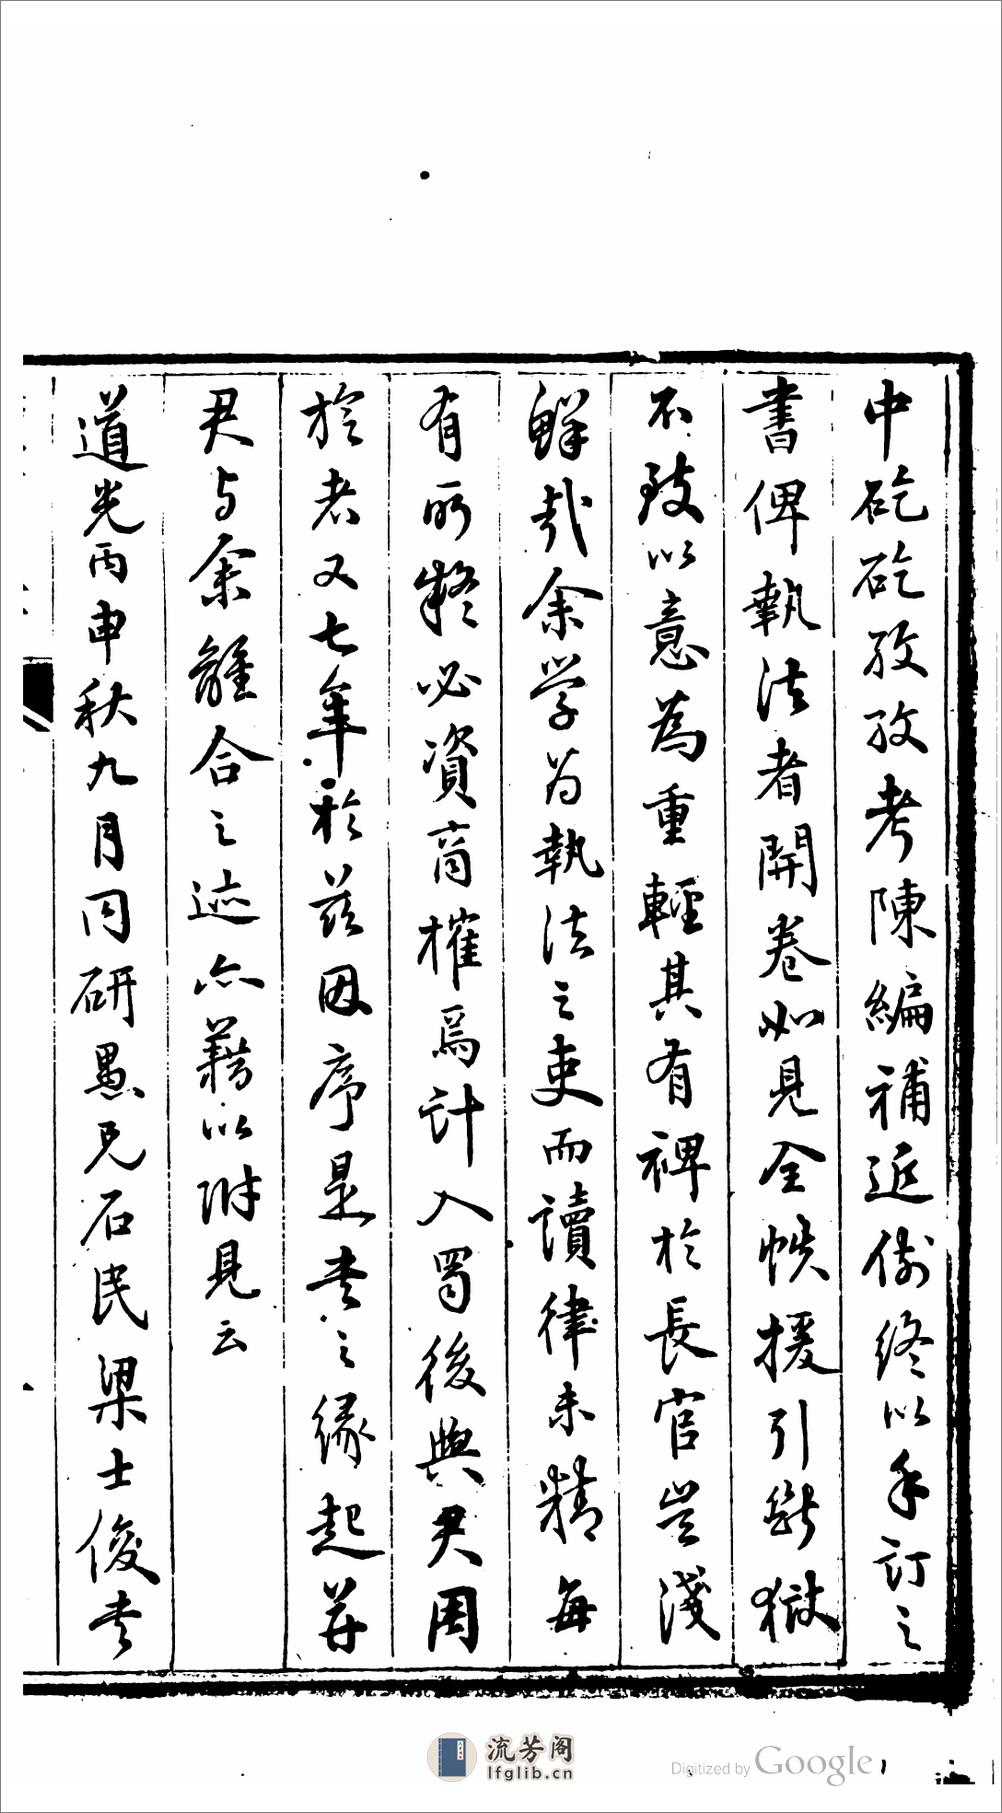 中矻矻孜孜考陳編補近例終以手訂之
書俾執法者開卷如見全帙援引斷獄
不致以意為重輕其有裨於長官豈淺
鮮哉余学为執法之吏而讀律未精每
有所疑必資商榷焉計入蜀後與尹周
於者又七年於茲因序是書之緣起并
尹与余離合之迹亦藉以附見云
道光丙申秋九月同研愚兄石民梁士俊书
流芳阁
lfglib.cn
Digitized by Google